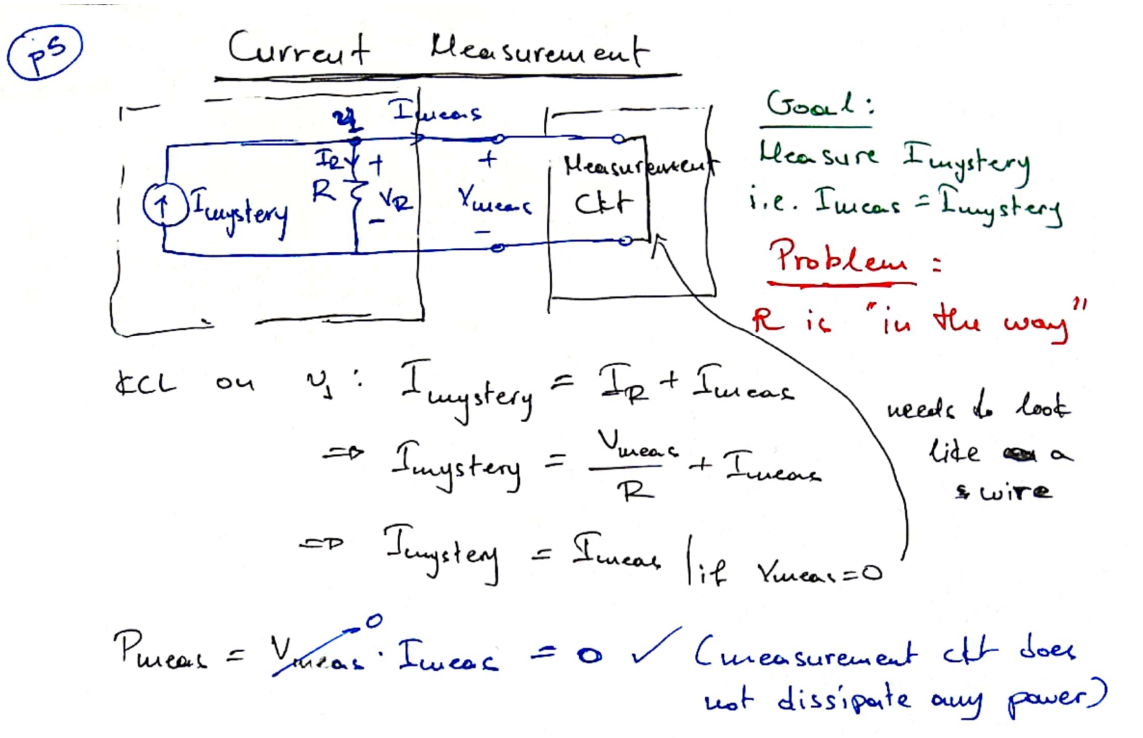 p5
Current Measurement
v1 Imeas
IR + + Measurement
R VR Vmeas Ckt
Imystery - -
Goal:
Measure Imystery
i.e. Imeas = Imystery
Problem:
R is "in the way"
KCL on v1: Imystery = IR + Imeas
=> Imystery = Vmeas/R + Imeas
=> Imystery = Imeas | if Vmeas=0
needs to look
like a
wire
Pmeas = Vmeas→0 · Imeas = 0 ✓ (measurement ckt does
not dissipate any power)